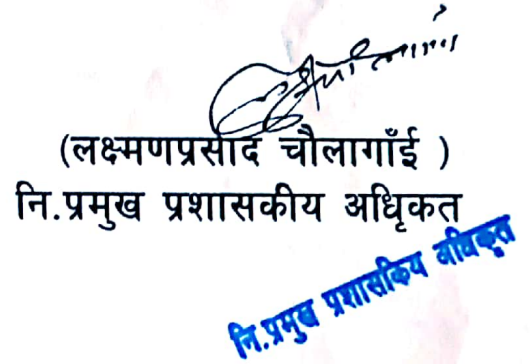 (लक्ष्मणप्रसाद चौलागाँई )
नि.प्रमुख प्रशासकीय अधिृकत
नि.प्रमुख प्रशासकिय अधिकृत